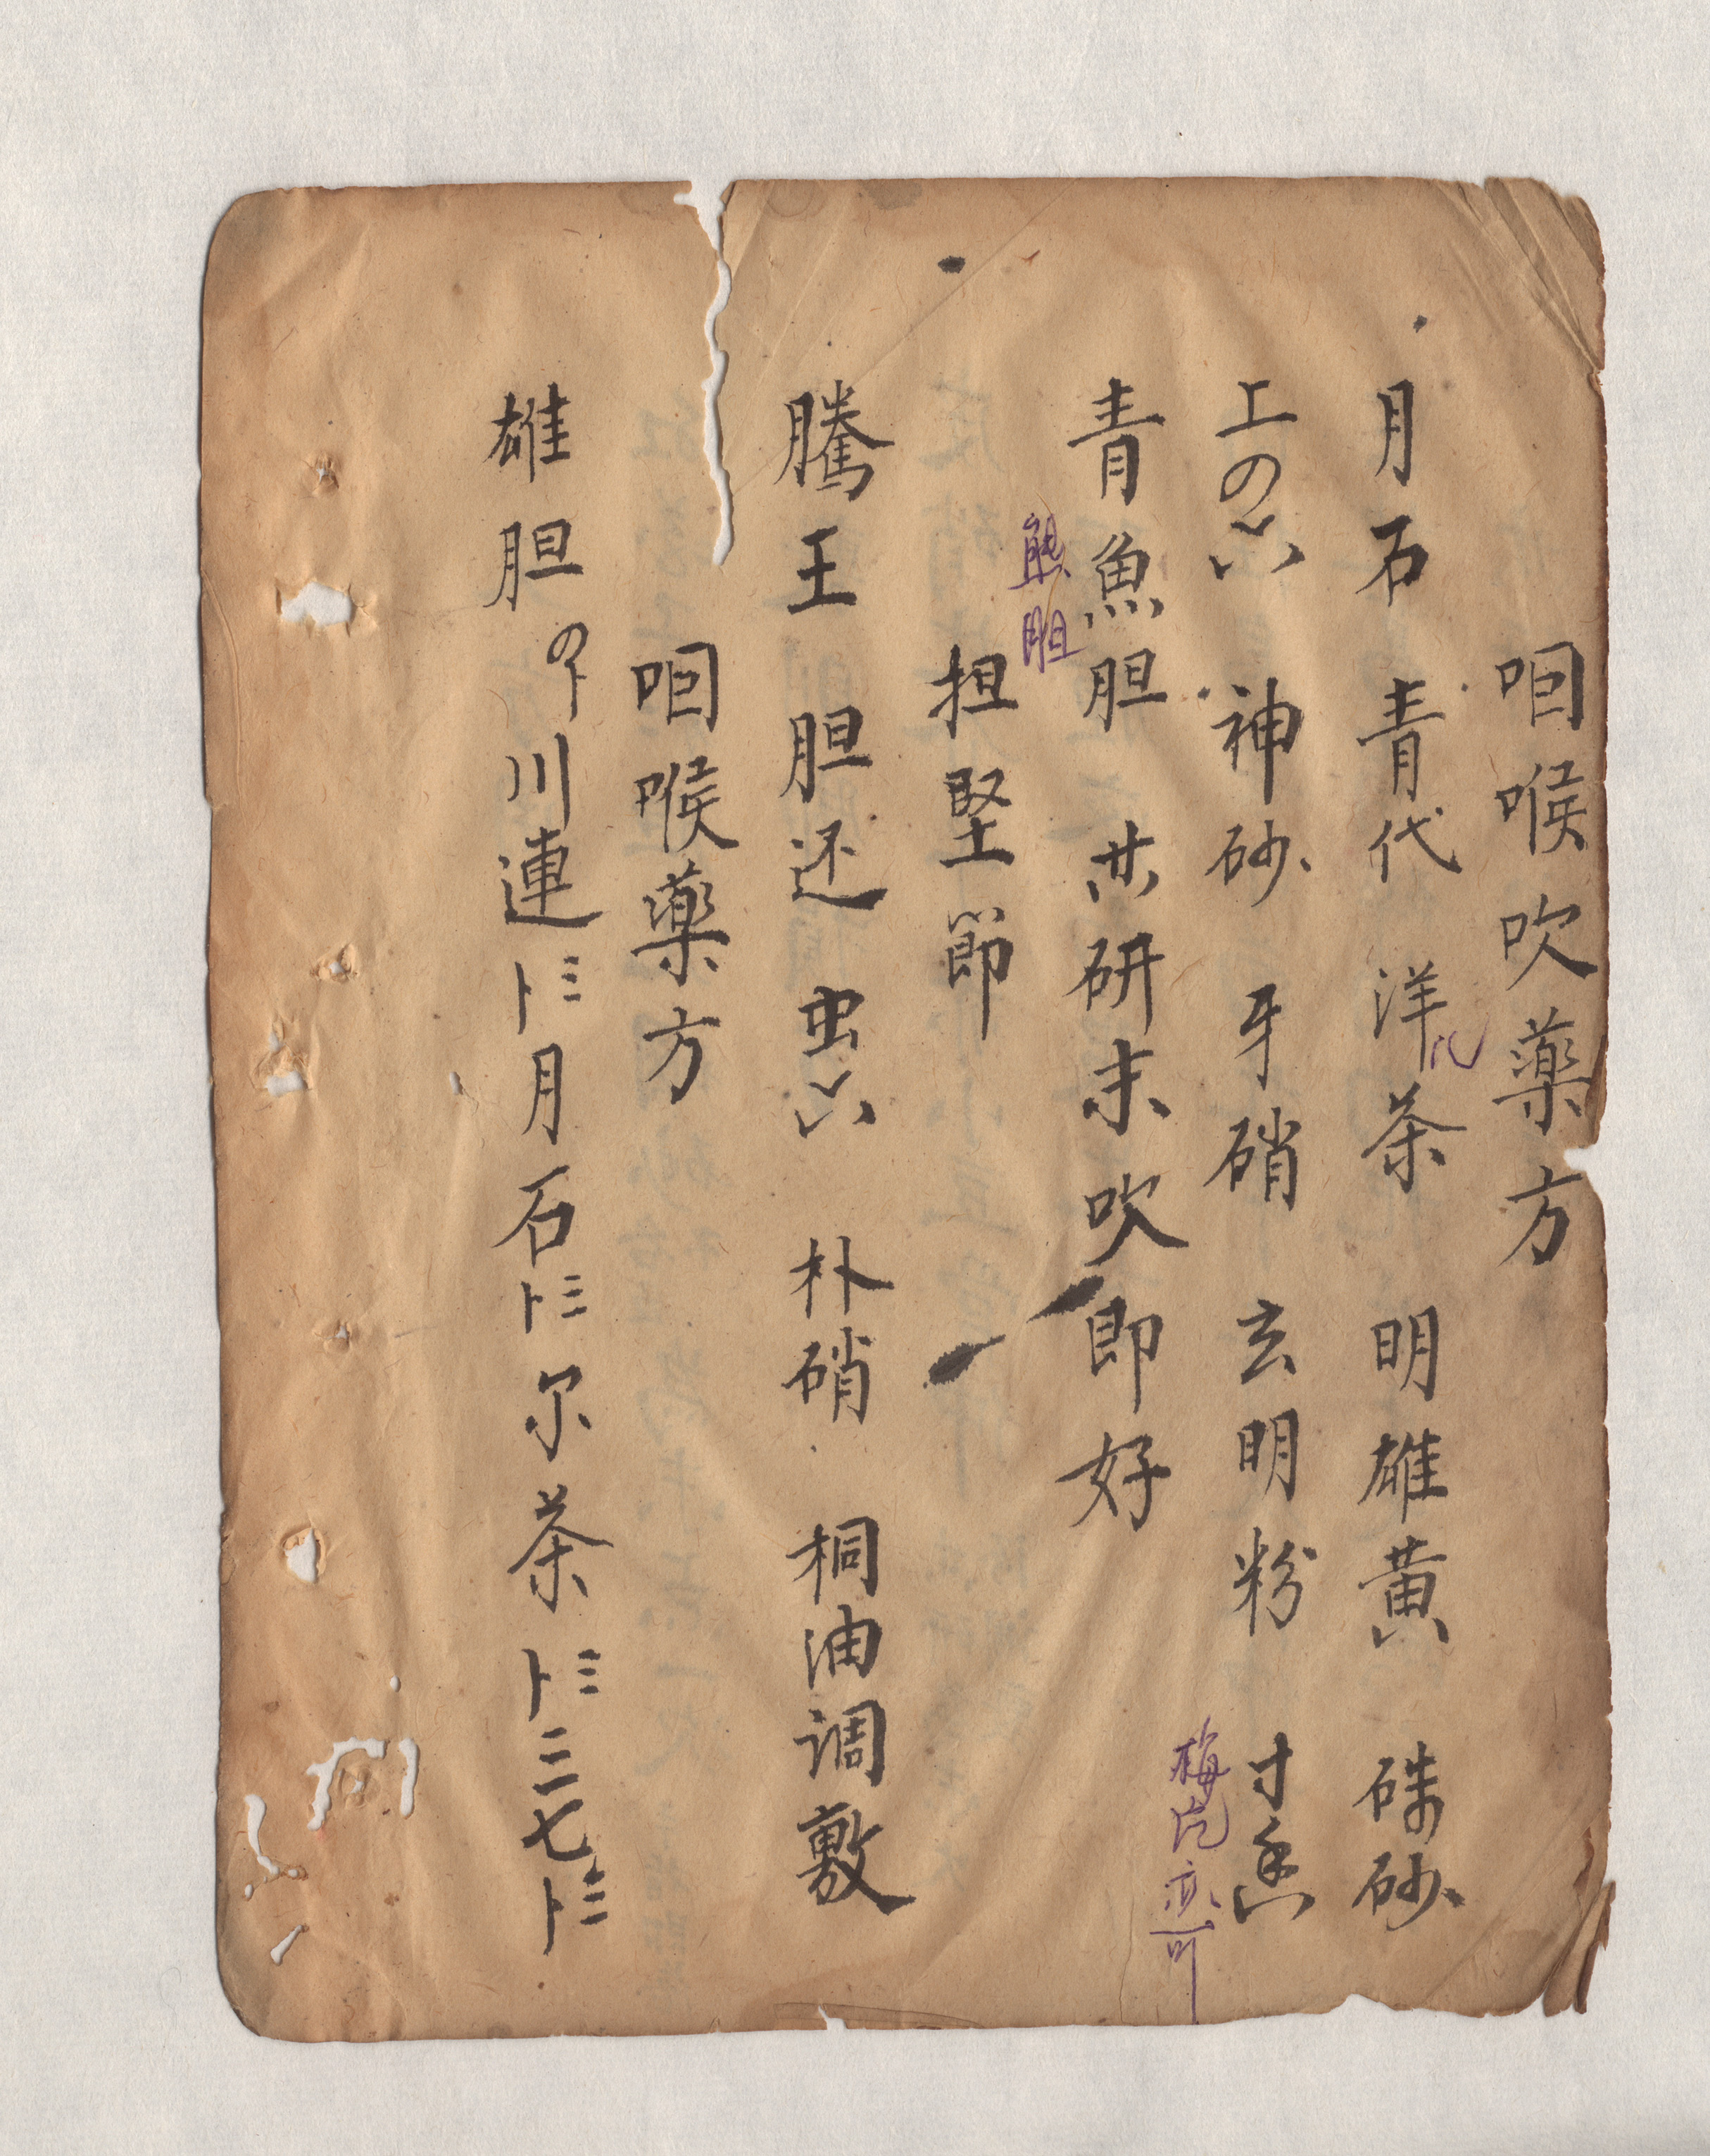 咽喉吹藥方
月石 青代 洋儿茶 明雄黄 硃砂
上の六 神砂 牙硝 玄明粉 寸香
梅片亦可
青魚胆 共研末吹即好
熊胆
担堅節
騰王胆还 虫六 朴硝 桐油调敷
咽喉藥方
雄胆の卜 川連卜三 月石卜三 尔茶卜三 三七卜三